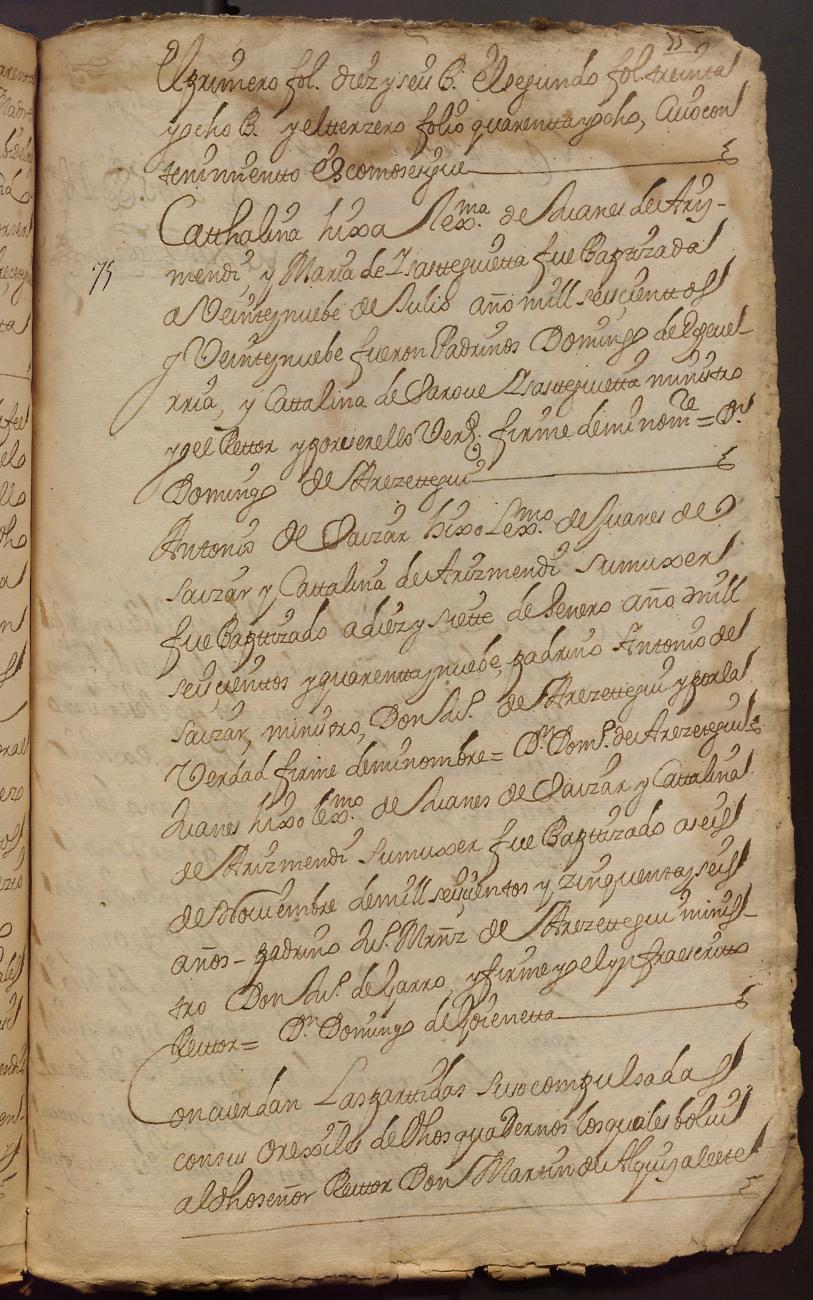 55
El primero fol. diez y seis B. El segundo fol. treinta
y ocho B. y el tterzero folio quarentta y ocho, Cuio con
tenimientto Es como se sigue
Catthalina hixa Lexma. de Juanes de Aris-
75
mendi, y Maria de Ysastteguietta fue Baptizada
a Veinte y nuebe de Julio año mill seiscienttos
y Veinte y nuebe fueron Padrinos Domingo de Egeuel-
rria, y Cattalina de Ysasteguietta ministro
yo el Rettor y por ser ello Verd. firme de mi nomre = Dn.
Domingo de Arezettegui
Antonio de Saizar hixo Lexmo. de Juanes de
Saizar y Cattalina de Arizmendi su muxer
fue Bapttizado a diez y siette de Henero año mill
seiscienttos y quarentta y nuebe, padrino Antonio de
Saizar, ministro, Don Ju. de Arezettegui y por la
Verdad firme de mi nombre = Dn. Dom. de Arezetegui
Juanes hixo lexmo. de Juanes de Saizar y Cattalina
de Arizmendi su muxer fue Bapttizado a seis
de Nouiembre de mill seiscientos y zinquenta y seis
años - padrino Ju. Mrnz de Arezettegui minis-
tro Don Ju. de Garro, y firme yo el ynfraescritto
Rettor = Dn. Domingo de Goienetta
Concuerdan Las parttidas suso compulsadas
con sus orexiles de dhos quadernos los quales bolui
al dho señor Rettor Don Marttin de Alquizalete